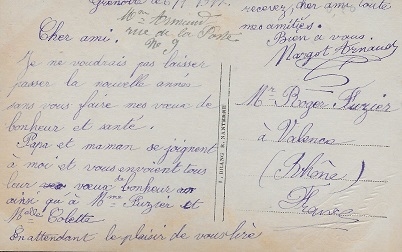 Grenoble le
Mme Armand
rue de la Poste
No 9
Cher ami.
Je ne voudrais pas laisser
passer la nouvelle année
sans vous faire mes vœux de
bonheur et santé.
Papa et maman se joignent
à moi et vous envoient tous
leur vœux bonheur
ainsi qu'à Mme Fuzier et
Mlle Colette
En attendant le plaisir de vous lire
recevez, cher ami, toute
mes amitiés.
Bien à vous.
Margot Arnaud
Mr Roger Fuzier
à Valence
(Rhône)
France